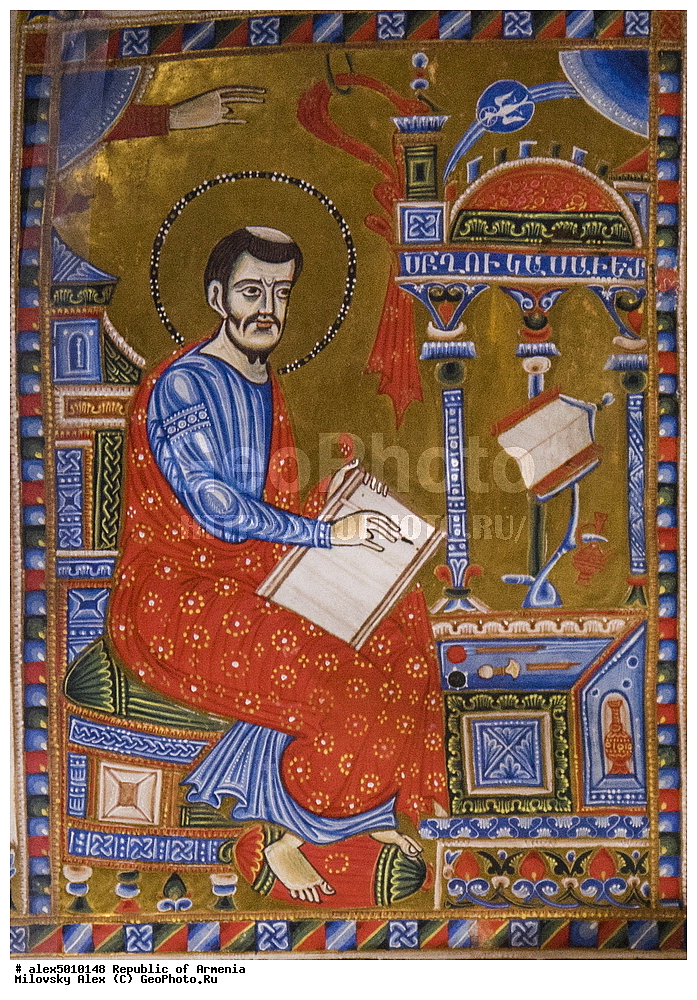 ՍԲՂՈՒԿԱՍԱՒԵՏ
GeoPhoto
HTTP://GEOPHOTO.RU/
# alex5010148 Republic of Armenia
Milovsky Alex (C) GeoPhoto.Ru